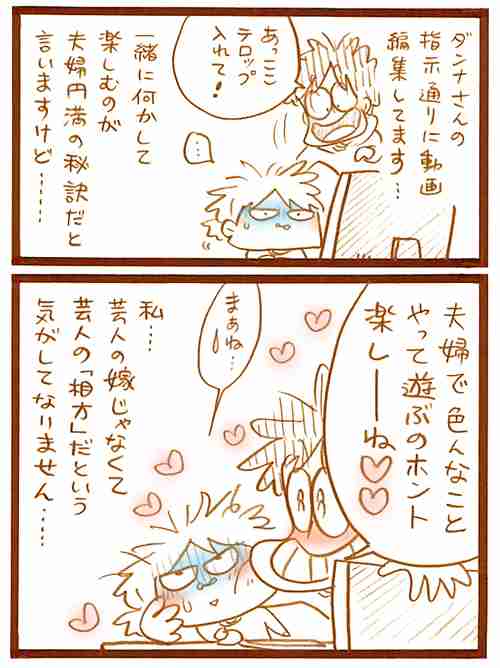 ダンナさんの
指示通りに動画
編集してます…
あっここ
テロップ
入れて!
…
一緒に何かして
楽しむのが
夫婦円満の秘訣だと
言いますけど……
夫婦で色んなこと
やって遊ぶのホント
楽しーね♡♡
まぁね…
私…
芸人の嫁じゃなくて
芸人の「相方」だという
気がしてなりません……